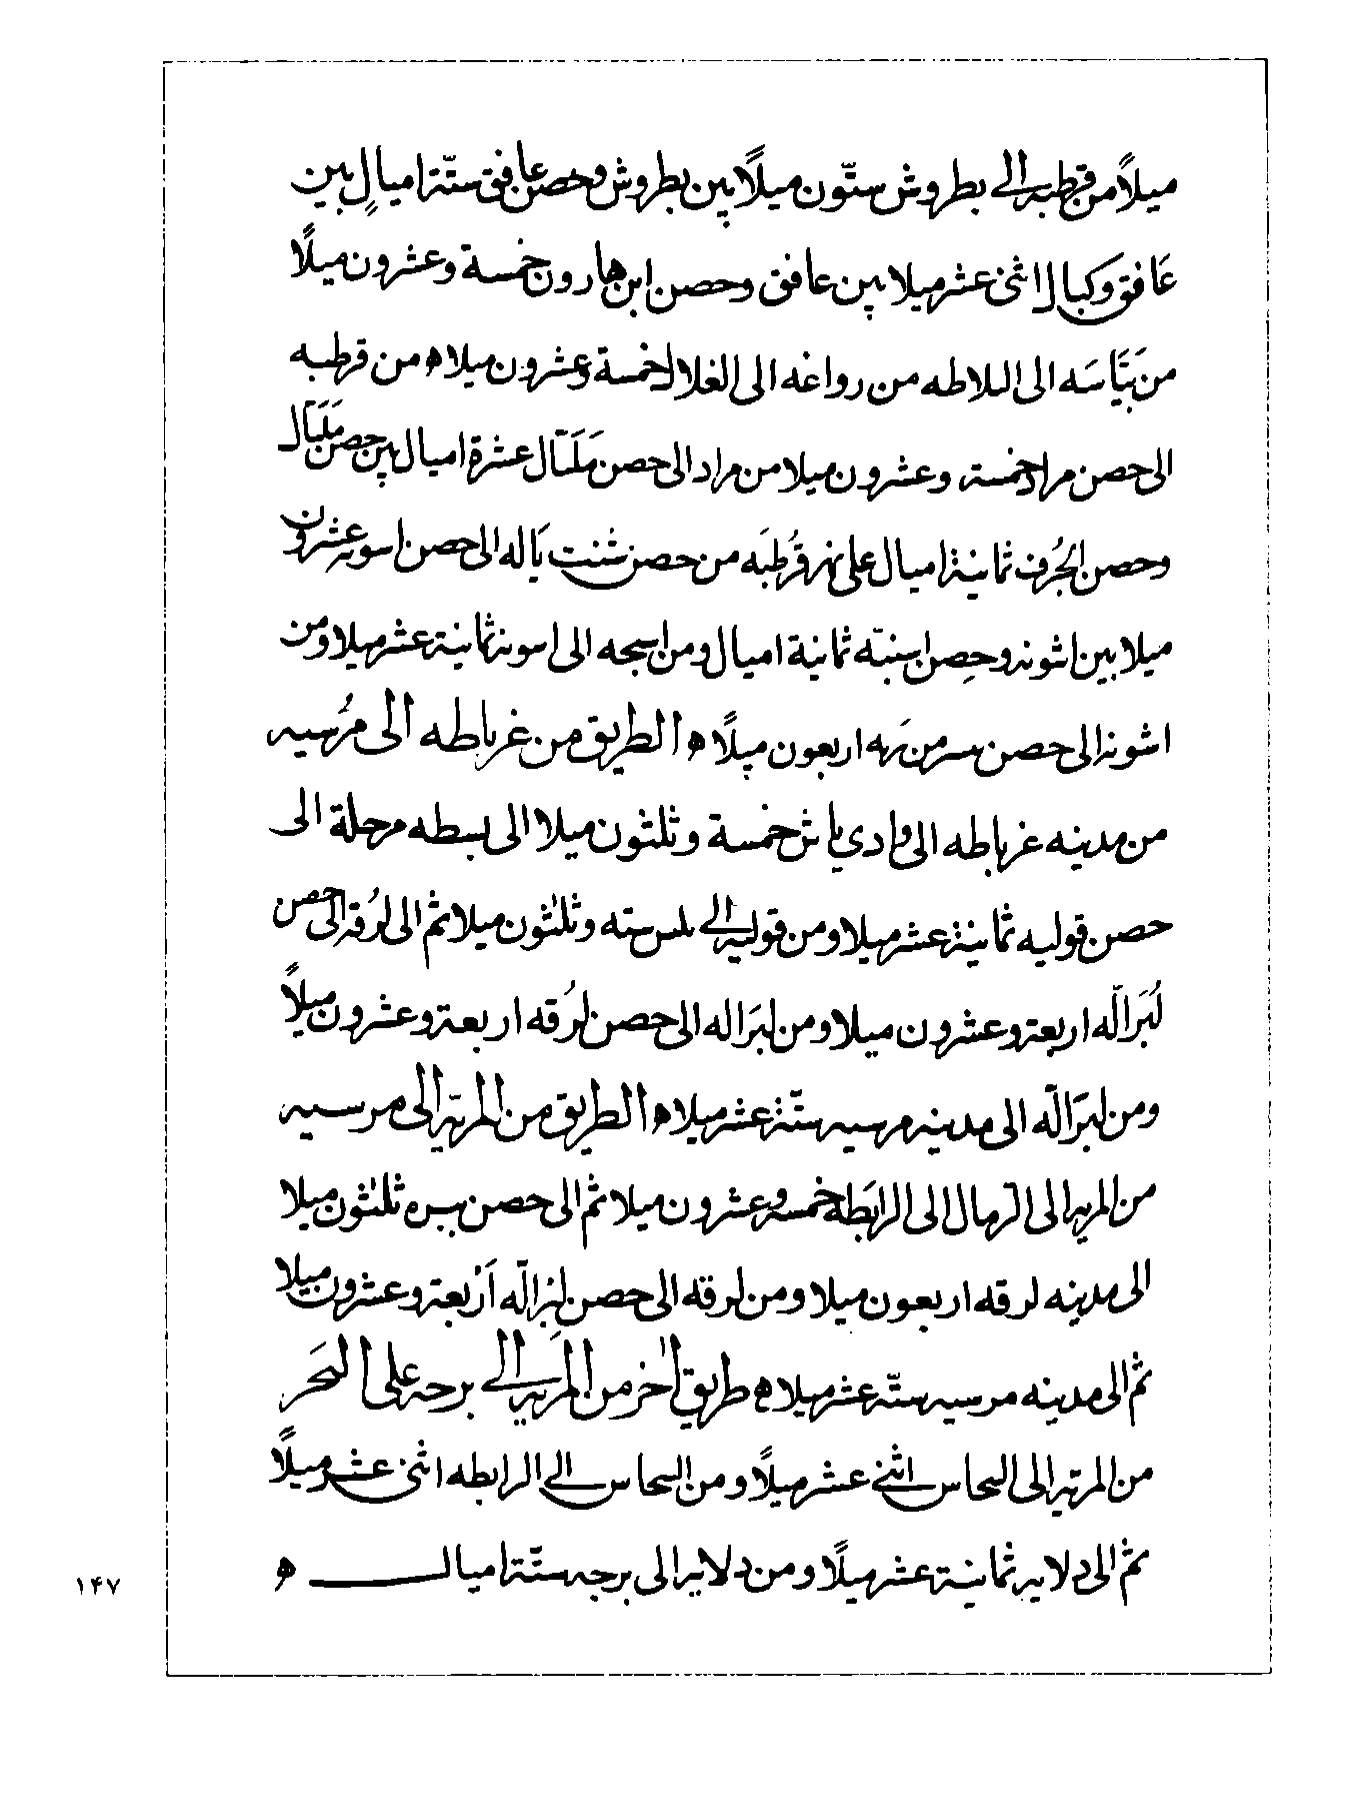 ميلاً من قرطبه الى بطروش ستّون ميلاً بين بطروش وحصن عافق ستّة اميالٍ بين
عَافق وكبال اثنى عشر ميلا بين عافق وحصن ابن هارون خمسة وعشرون ميلًا
من بَيَّاسَه الى البلاطه من رواغه الى الغلال خمسة وعشرون ميلا ه من قرطبه
الى حصن مراد خمسة وعشرون ميلا من مراد الى حصن مَلَبَال عشرة اميال بين حصن مَلَبَال
وحصن الجُرف ثمانية اميال على نهر قُرطبَه من حصن شنت ياله الى حصن اسونه عشرون
ميلا بين اشونه وحِصن اسنبّه ثمانية اميال ومن اسجه الى اسونه ثمانية عشر ميلا ومن
اشونه الى حصن اربعون ميلًا ه الطريق من غرناطه الى مُرسيه
من مدينه غرناطه الى وادي ياش خمسة وثلثون ميلا الى بسطه مرحلة الى
حصن قوليه ثمانية عشر ميلا ومن قوليه الى بلس سته وثلثون ميلا ثم الى لُرقه الى حصن
لُبَرالّه اربعة وعشرون ميلا ومن لبَراله الى حصن لُرقه اربعة وعشرون ميلًا
ومن لبرَالّه الى مدينه مرسيه ستّة عشر ميلا ه الطريق من المريّه الى مرسيه
من المريه الى الرمال الى الرابَطه خمسة وعشرون ميلا ثم الى حصن بيره ثلثون ميلا
الى مدينه لرقه اربعون ميلا ومن لرقه الى حصن لبرالّه اَرْبعة وعشرون ميلا
ثم الى مدينه مرسيه ستّه عشر ميلا ه طريق اخر من المَريه الى برجه على البحَر
من المريّه الى البجاس اثنى عشر ميلًا ومن البجاس الى الرابطه اثنى عشر ميلًا
ثم الى دلايه ثمانية عشر ميلًا ومن دلايه الى برجه ستّة اميال ه
۱۴۷